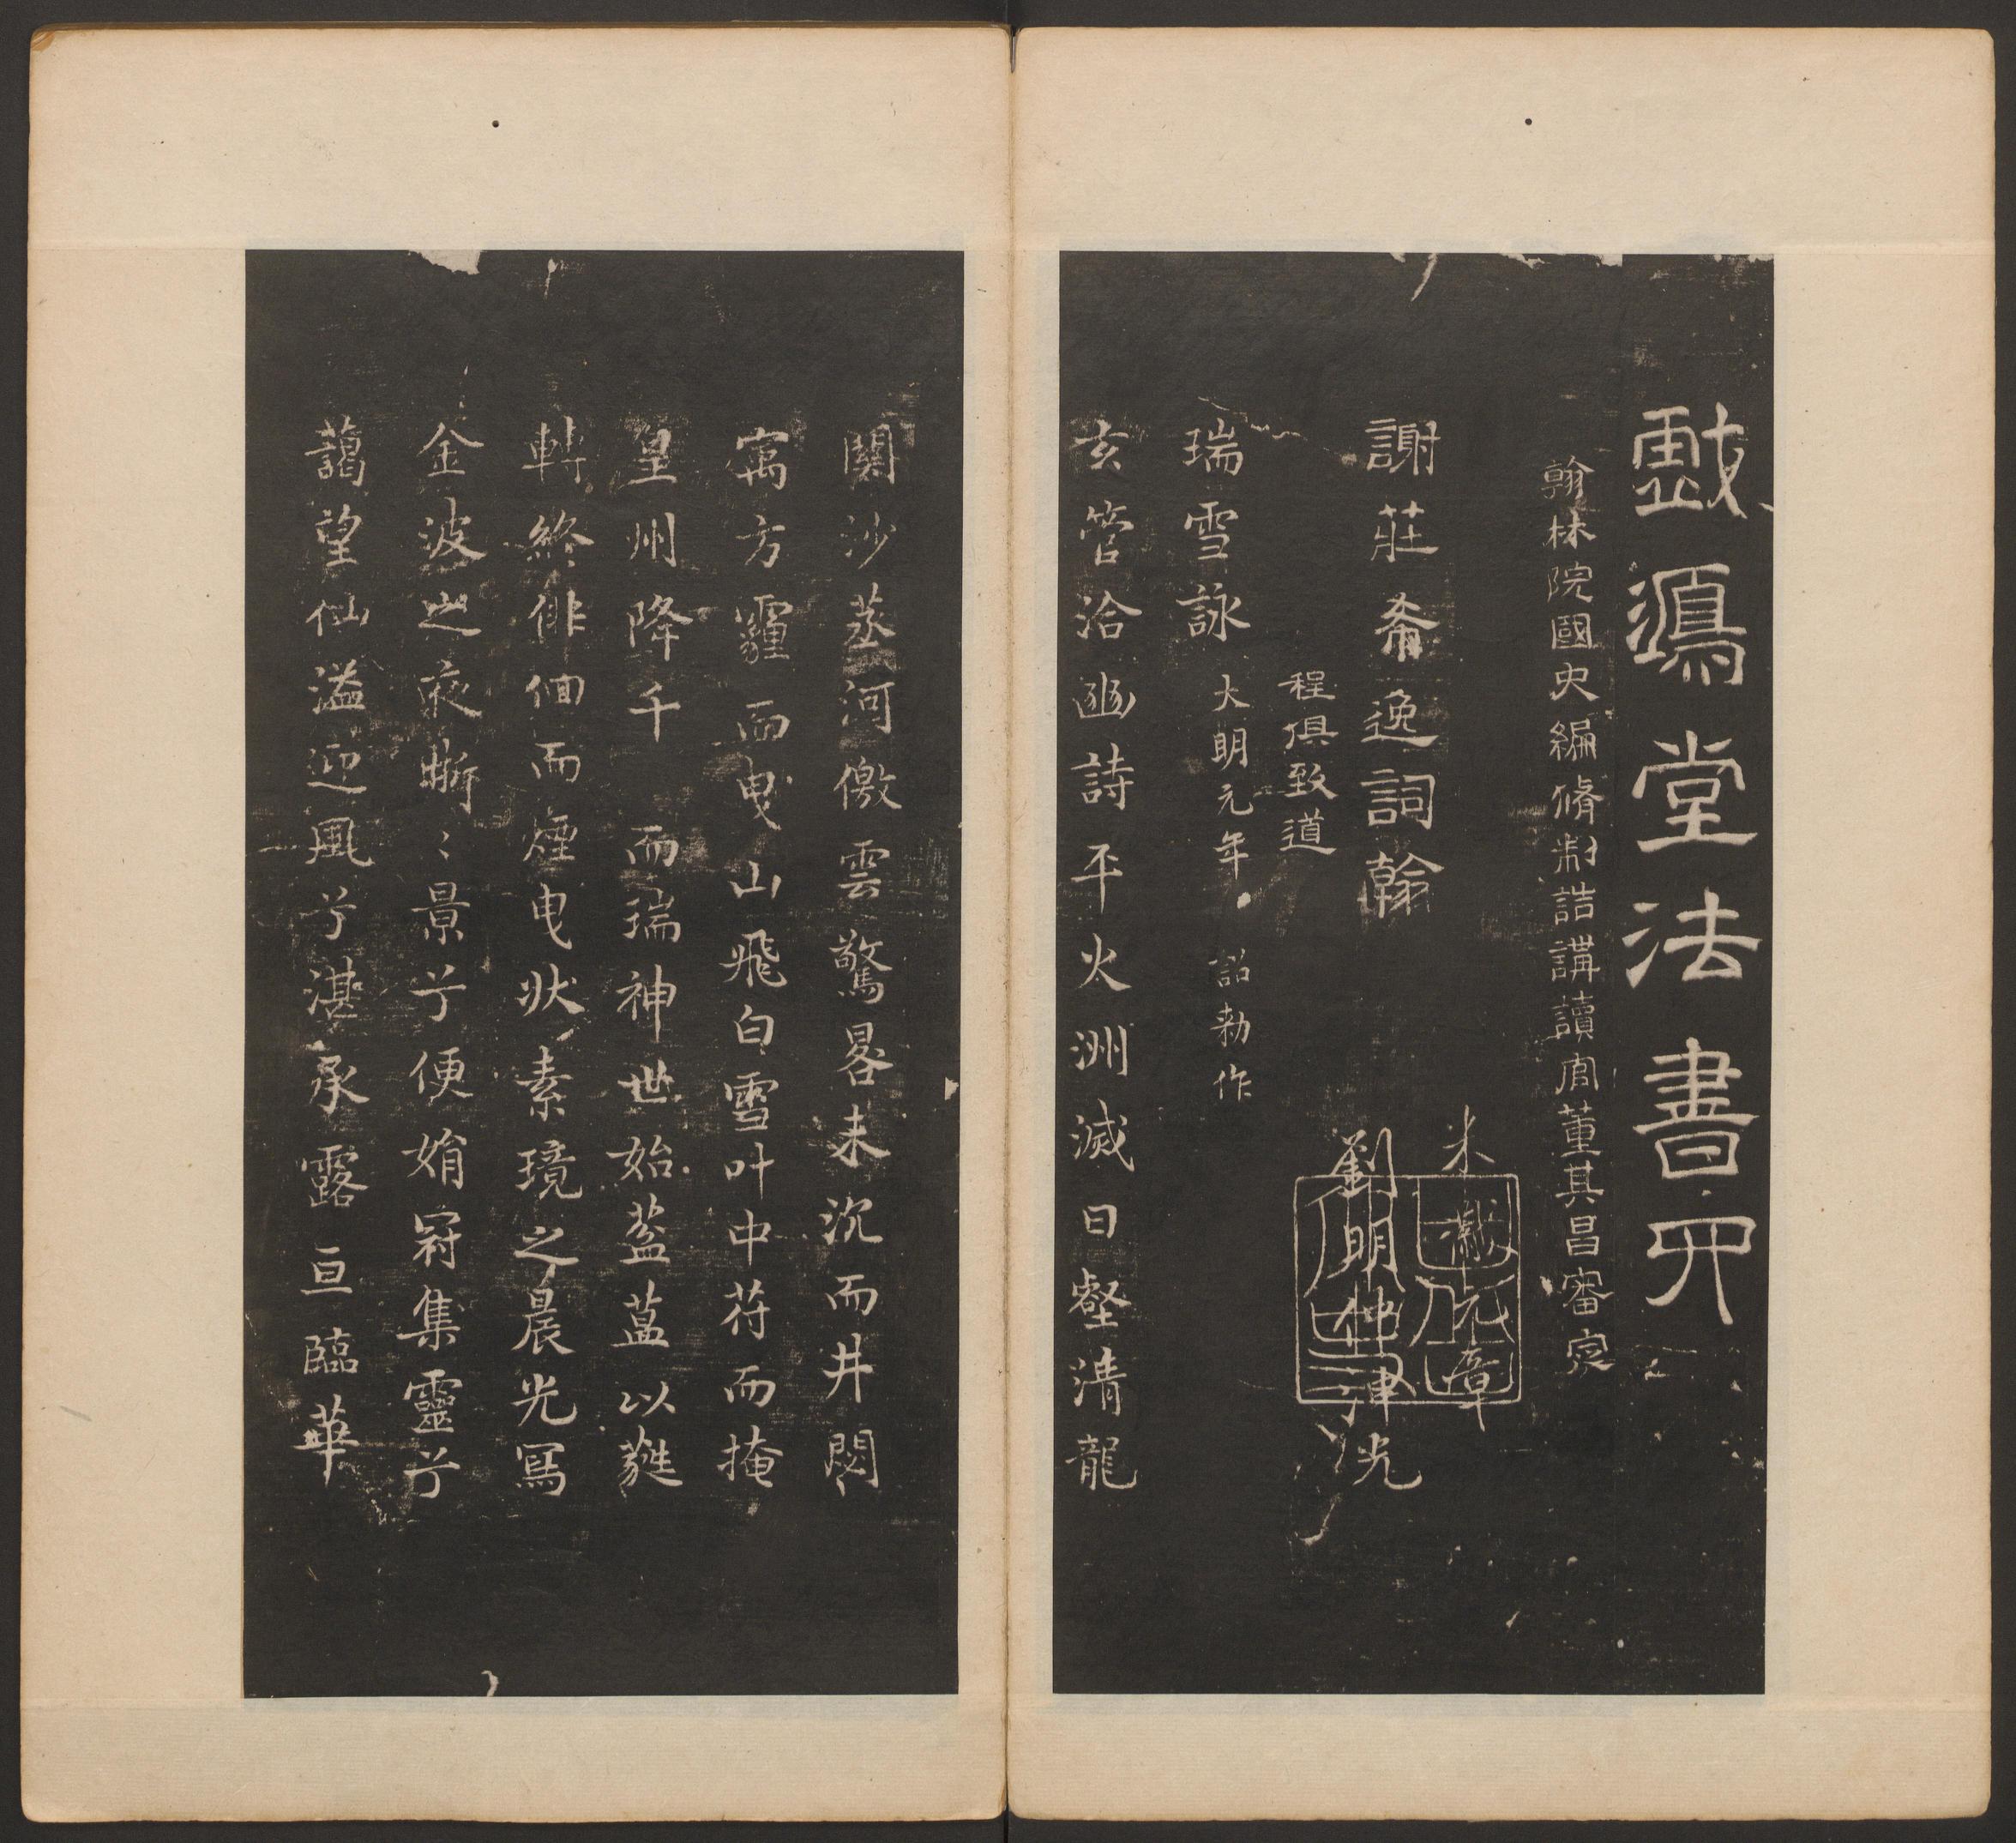 戲鴻堂法書四
翰林院國史編脩制誥講讀官董其昌審定
謝莊希逸詞翰
程俱致道
瑞雪詠 大明元年 詔勑作
米黻元章
劉明仲津光
玄管洽幽詩平火洲滅日壑清龍
關沙蒸河儌雲驚晷未沉而井閟
寓方霾而曳山飛白雪叶中苻而掩
皇州降千而瑞神世始葢蒀以蕤
轉終俳佪而煙曳狀素璄之晨光寫
金波之夜晣〻景兮便娟冠集靈兮
藹望仙溢迎風兮湛承露亘臨華